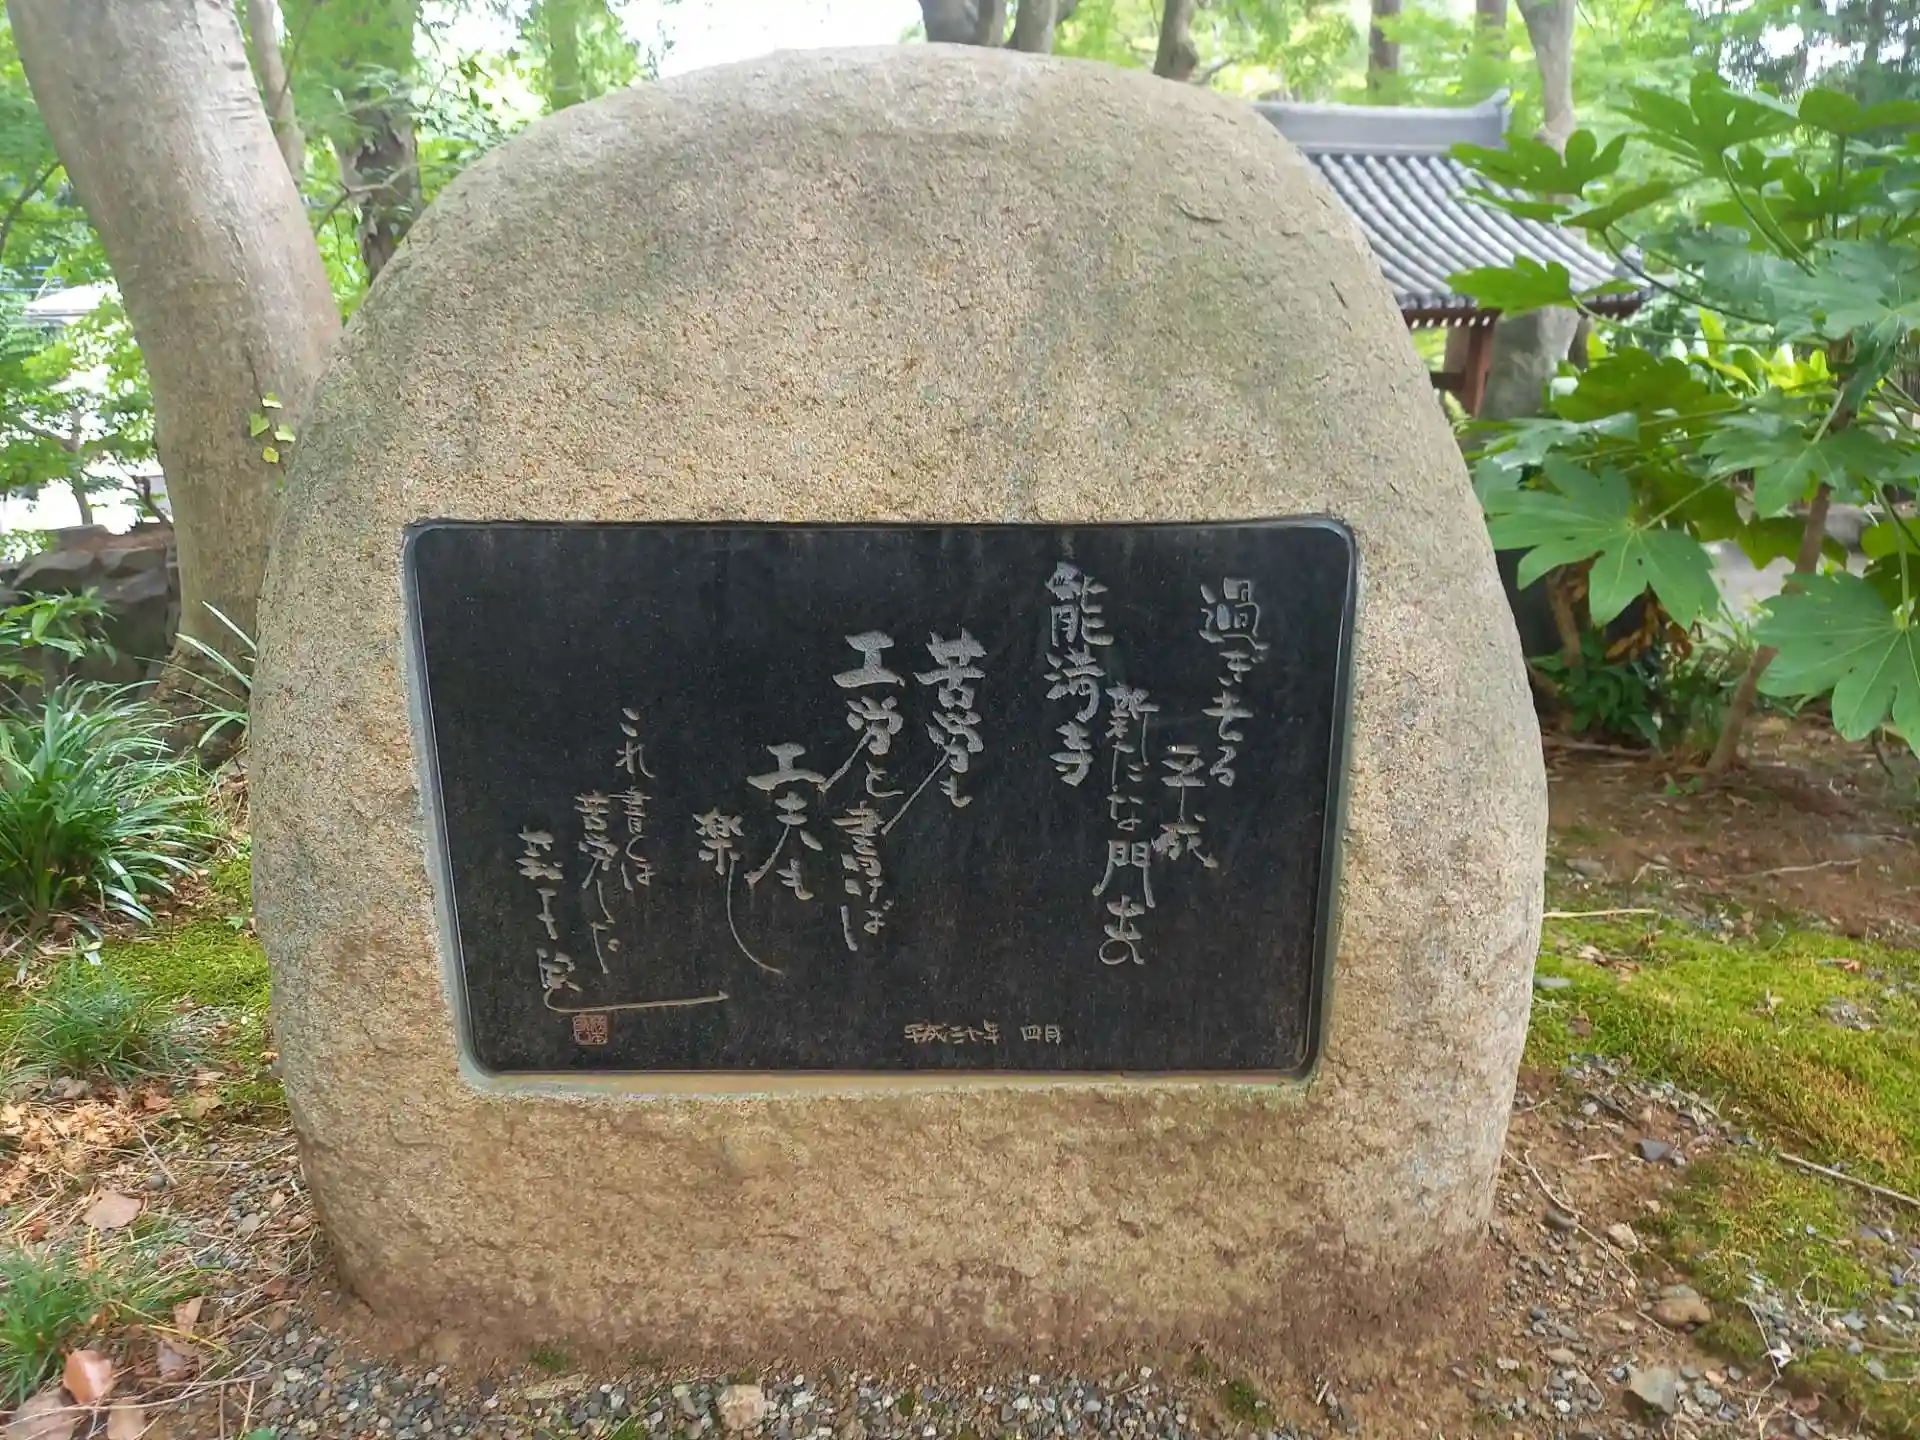 過ぎ去る
平成
新たな門出の
能満寺
苦労も
工労と書けば
工夫も
楽し
これ書くは
苦労した
平成三十年 四月